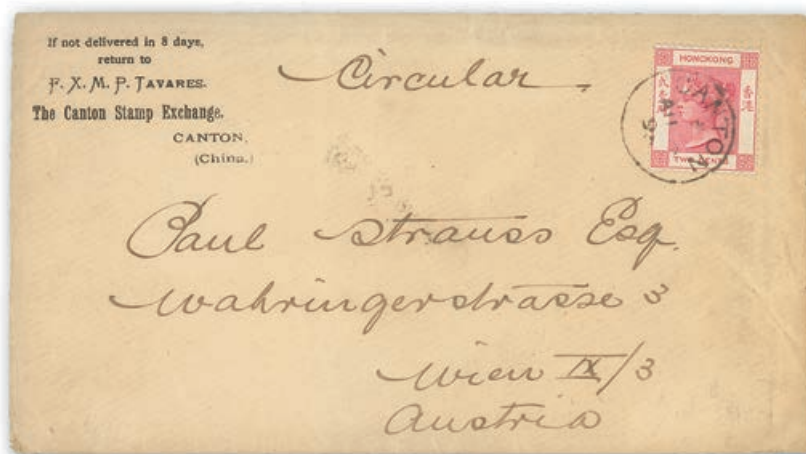 If not delivered in 8 days,
return to
F. X. M. P. TAVARES.
The Canton Stamp Exchange,
CANTON,
(China.)
Circular
HONGKONG
香港
TWO CENTS
CANTON
Paul Strauss Esq.
Wahringerstrasse 3
Wien IX/3
Austria